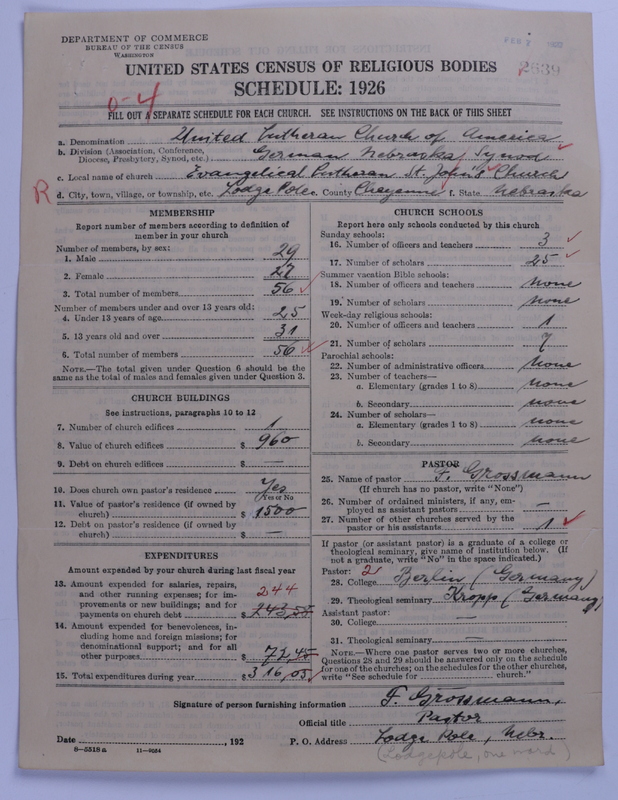 DEPARTMENT OF COMMERCE
BUREAU OF THE CENSUS
WASHINGTON
FEB 2
2639
UNITED STATES CENSUS OF RELIGIOUS BODIES
SCHEDULE: 1926
0-4
FILL OUT A SEPARATE SCHEDULE FOR EACH CHURCH. SEE INSTRUCTIONS ON THE BACK OF THIS SHEET
a. Denomination United Lutheran Church of America
b. Division (Association, Conference, Diocese, Presbytery, Synod, etc.) German Nebraska Synod
c. Local name of church Evangelical Lutheran St. John's Church
R d. City, town, village, or township, etc. Lodge Pole e. County Cheyenne f. State Nebraska
MEMBERSHIP
Report number of members according to definition of
member in your church
Number of members, by sex:
1. Male 29
2. Female 27
3. Total number of members 56
Number of members under and over 13 years old:
4. Under 13 years of age 25
5. 13 years old and over 31
6. Total number of members 56
NOTE.—The total given under Question 6 should be the
same as the total of males and females given under Question 3.
CHURCH BUILDINGS
See instructions, paragraphs 10 to 12
7. Number of church edifices 1
8. Value of church edifices $ 960
9. Debt on church edifices $ —
10. Does church own pastor's residence Yes
Yes or No
11. Value of pastor's residence (if owned by
church) $ 1500
12. Debt on pastor's residence (if owned by
church) $ —
EXPENDITURES
Amount expended by your church during last fiscal year
13. Amount expended for salaries, repairs,
and other running expenses; for im-
provements or new buildings; and for
payments on church debt $ 243,55
244
14. Amount expended for benevolences, in-
cluding home and foreign missions; for
denominational support; and for all
other purposes $ 72,45
15. Total expenditures during year $ 316,05
CHURCH SCHOOLS
Report here only schools conducted by this church
Sunday schools:
16. Number of officers and teachers 3
17. Number of scholars 25
Summer vacation Bible schools:
18. Number of officers and teachers none
19. Number of scholars none
Week-day religious schools:
20. Number of officers and teachers 1
21. Number of scholars 7
Parochial schools:
22. Number of administrative officers none
23. Number of teachers—
a. Elementary (grades 1 to 8) none
b. Secondary none
24. Number of scholars—
a. Elementary (grades 1 to 8) none
b. Secondary none
PASTOR
25. Name of pastor F. Grossmann
(If church has no pastor, write "None")
26. Number of ordained ministers, if any, em-
ployed as assistant pastors —
27. Number of other churches served by the
pastor or his assistants 1
If pastor (or assistant pastor) is a graduate of a college or
theological seminary, give name of institution below. (If
not a graduate, write "No" in the space indicated.)
Pastor: 2
28. College Berlin (Germany)
29. Theological seminary Kropp (Germany)
Assistant pastor:
30. College —
31. Theological seminary —
NOTE.—Where one pastor serves two or more churches,
Questions 28 and 29 should be answered only on the schedule
for one of the churches; on the schedules for the other churches,
write "See schedule for church."
Signature of person furnishing information F. Grossmann,
Official title Pastor
Date , 192 P. O. Address Lodge Pole, Nebr.
8-5518a 11-9654 (Lodgepole, one word)